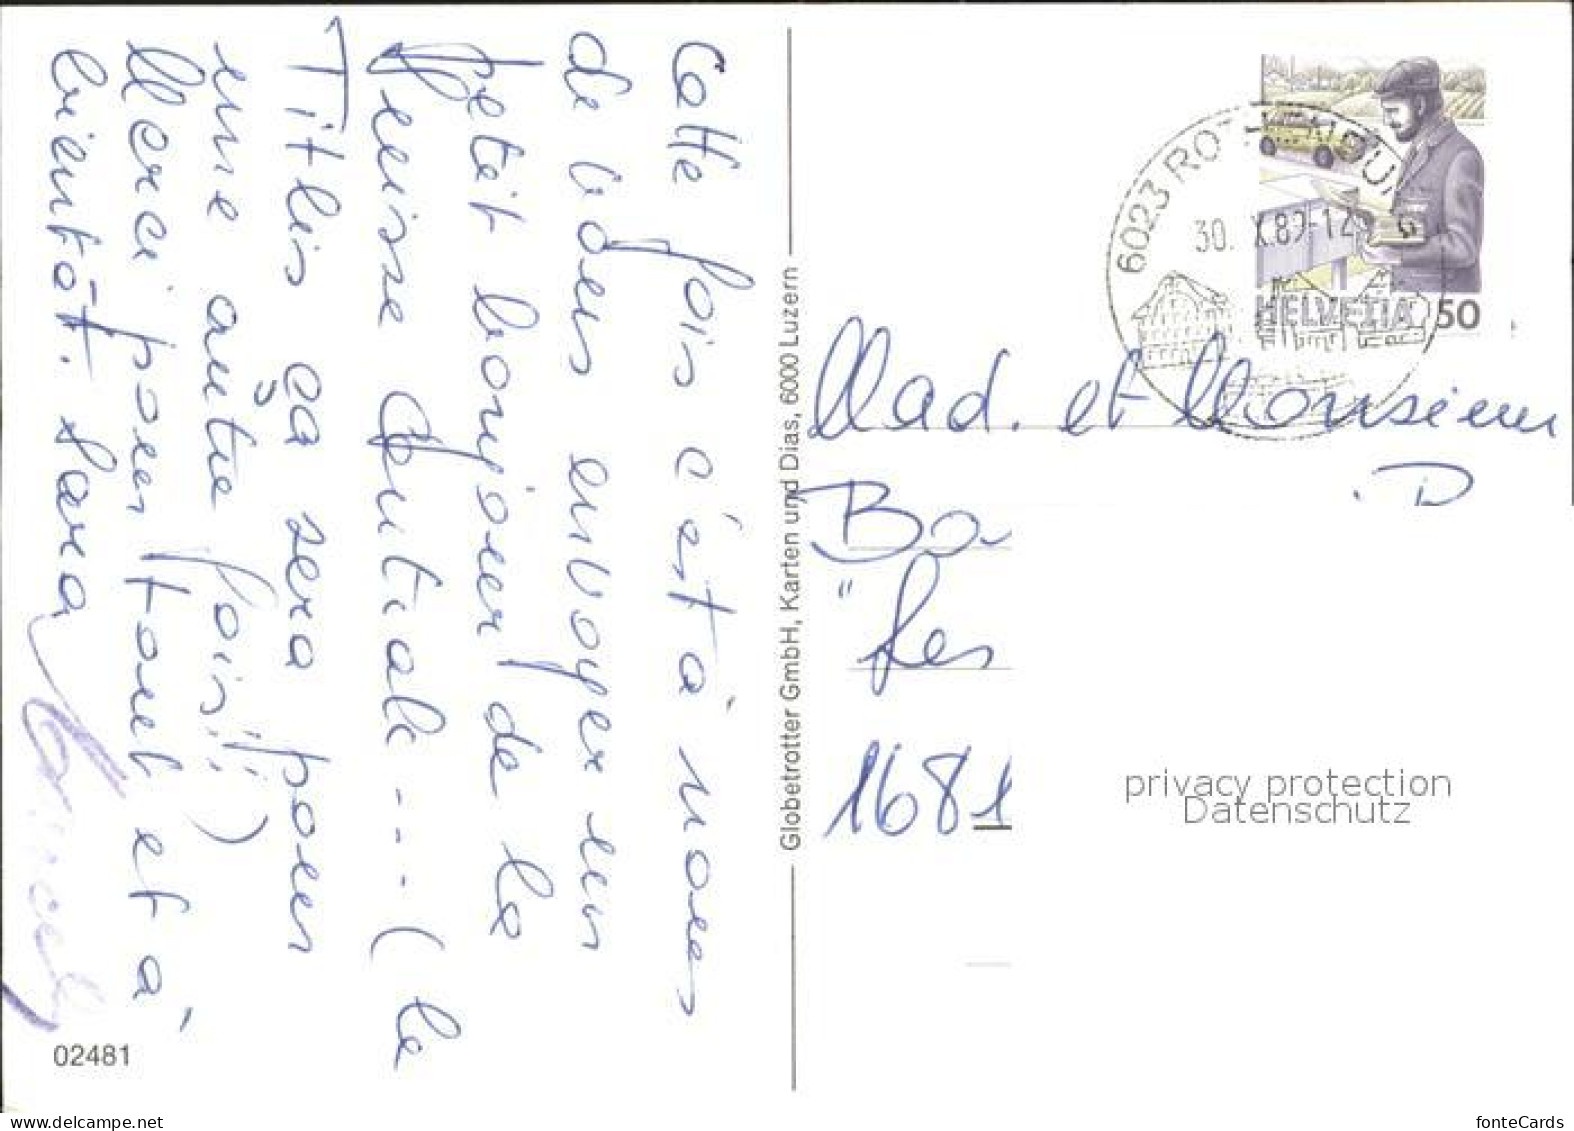 Cette fois c'est à nous
de vous envoyer un
petit bonjour de la
Suisse Centrale ---- (le
Titlis ça sera pour
une autre fois!!!)
Merci pour tout et à
bientôt. Sara
02481
Globetrotter GmbH, Karten und Dias, 6000 Luzern
6023 ROTHENBURG
30. X.89-12
HELVETIA 50
Mad. et Monsieur
Ba
"Les
1681
privacy protection
Datenschutz
www.delcampe.net
fonteCards